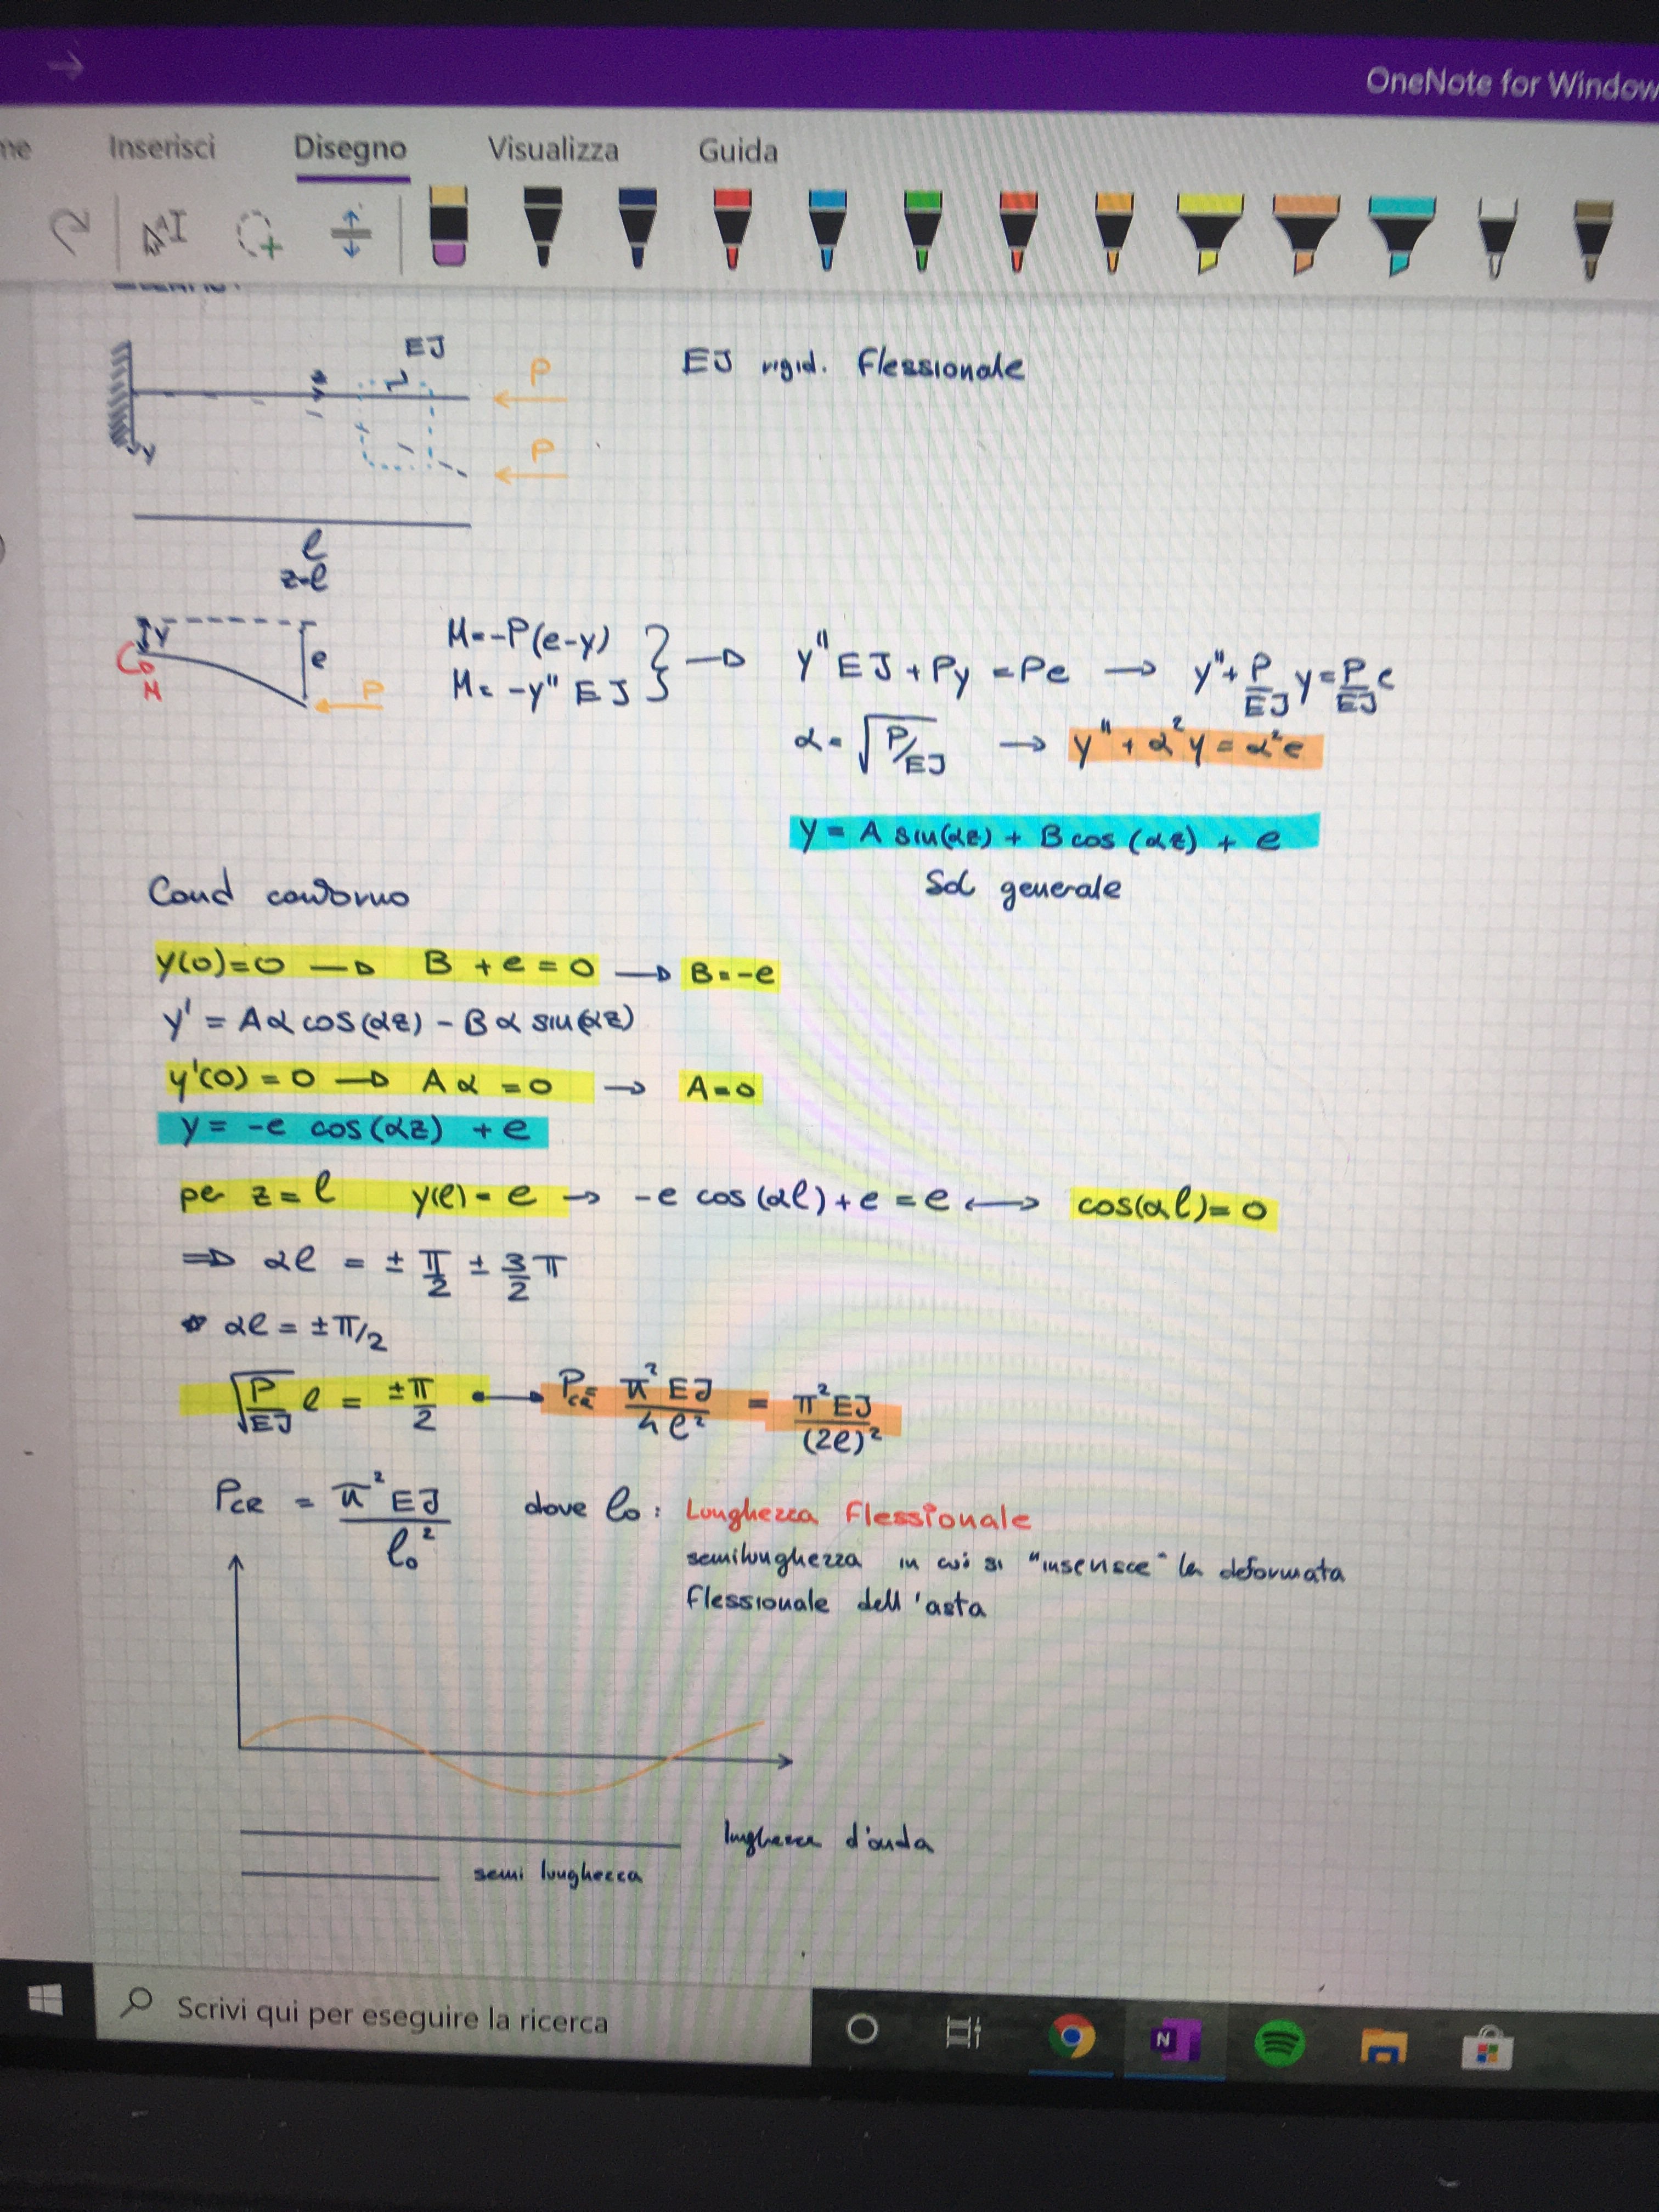 OneNote for Window
me Inserisci Disegno Visualizza Guida
EJ
P
EJ rigid. flessionale
P
y
l
z-l
y
e
M
P
M=-P(e-y)
M=-y"EJ
y"EJ+Py=Pe → y"+P/EJ y=P/EJ e
α=√P/EJ → y"+α²y=α²e
y=A sin(αz)+B cos(αz)+e
Sol generale
Cond contorno
y(0)=0 → B+e=0 → B=-e
y'=Aα cos(αz)-Bα sin(αz)
y'(0)=0 → Aα=0 → A=0
y=-e cos(αz)+e
per z=l y(l)=e → -e cos(αl)+e=e ↔ cos(αl)=0
⇒ αl=±π/2 ±3/2π
αl=±π/2
√P/EJ l=±π/2 → Pcr=π²EJ/4l²=π²EJ/(2l)²
PCR=π²EJ/lo² dove lo: Lunghezza flessionale
semilunghezza in cui si "inserisce" la deformata
flessionale dell'asta
lunghezza d'onda
semi lunghezza
Scrivi qui per eseguire la ricerca
N